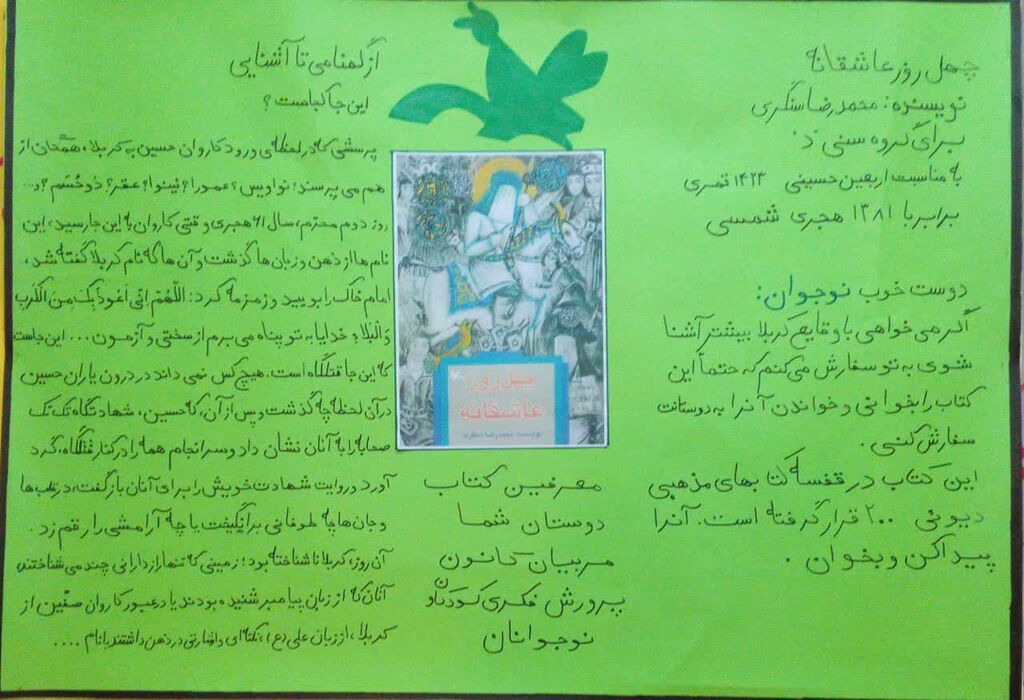 چهل روز عاشقانه
نویسنده: محمدرضا سنگری
برای گروه سنی د:
به مناسبت اربعین حسینی ۱۴۲۳ قمری
برابر با ۱۳۸۱ هجری شمسی
دوست خوب نوجوان:
اگر می خواهی با وقایع کربلا بیشتر آشنا
شوی به تو سفارش می کنم که حتماً این
کتاب را بخوانی و خواندن آنرا به دوستانت
سفارش کنی.
این کتاب در قفسه کتابهای مذهبی
دیوئی ۲۰۰ قرار گرفته است. آنرا
پیدا کن و بخوان.
چهل روز
عاشقانه
نویسنده: محمدرضا سنگری
معرفین کتاب
دوستان شما
مربیان کانون
پرورش فکری کودکان و
نوجوانان
از گمنامی تا آشنایی
این جا کجاست؟
پرسشی که در لحظه ی ورود کاروان حسین به کربلا، همگان از
هم می پرسند؛ نواویس؟ عمورا؟ نینوا؟ عقر؟ ذوحُسَم؟ و...
روز دوم محرم، سال ۶۱ هجری وقتی کاروان به این جا رسید، این
نام ها از ذهن و زبان ها گذشت و آن ها که نام کربلا گفته شد،
امام خاک را بویید و زمزمه کرد: اللّهُمَّ اِنّی اَعوذُ بِکَ مِنَ الکَربِ
وَ البَلاءِ خدایا به تو پناه می برم از سختی و آزمون... این جاست
که این جا قتلگاه است. هیچ کس نمی داند در درون یاران حسین
در آن لحظه چه گذشت و پس از آن، که حسین، شهادتگاه تک تک
صحابه را به آنان نشان داد و سرانجام همه را در کنار قتلگاه، گرد
آورد و روایت شهادت خویش را برای آنان بازگفت، در قلب ها
و جان ها چه طوفانی برانگیخت یا چه آرامشی را رقم زد.
آن روز، کربلا ناشناخته بود؛ زمینی که تنها رازدارانی چند می شناختند،
آنان که از زبان پیامبر شنیده بودند یا در عبور کاروان صفین از
کربلا، از زبان علی (ع)، نکته ای و اشارتی در ذهن داشتند با نام ....